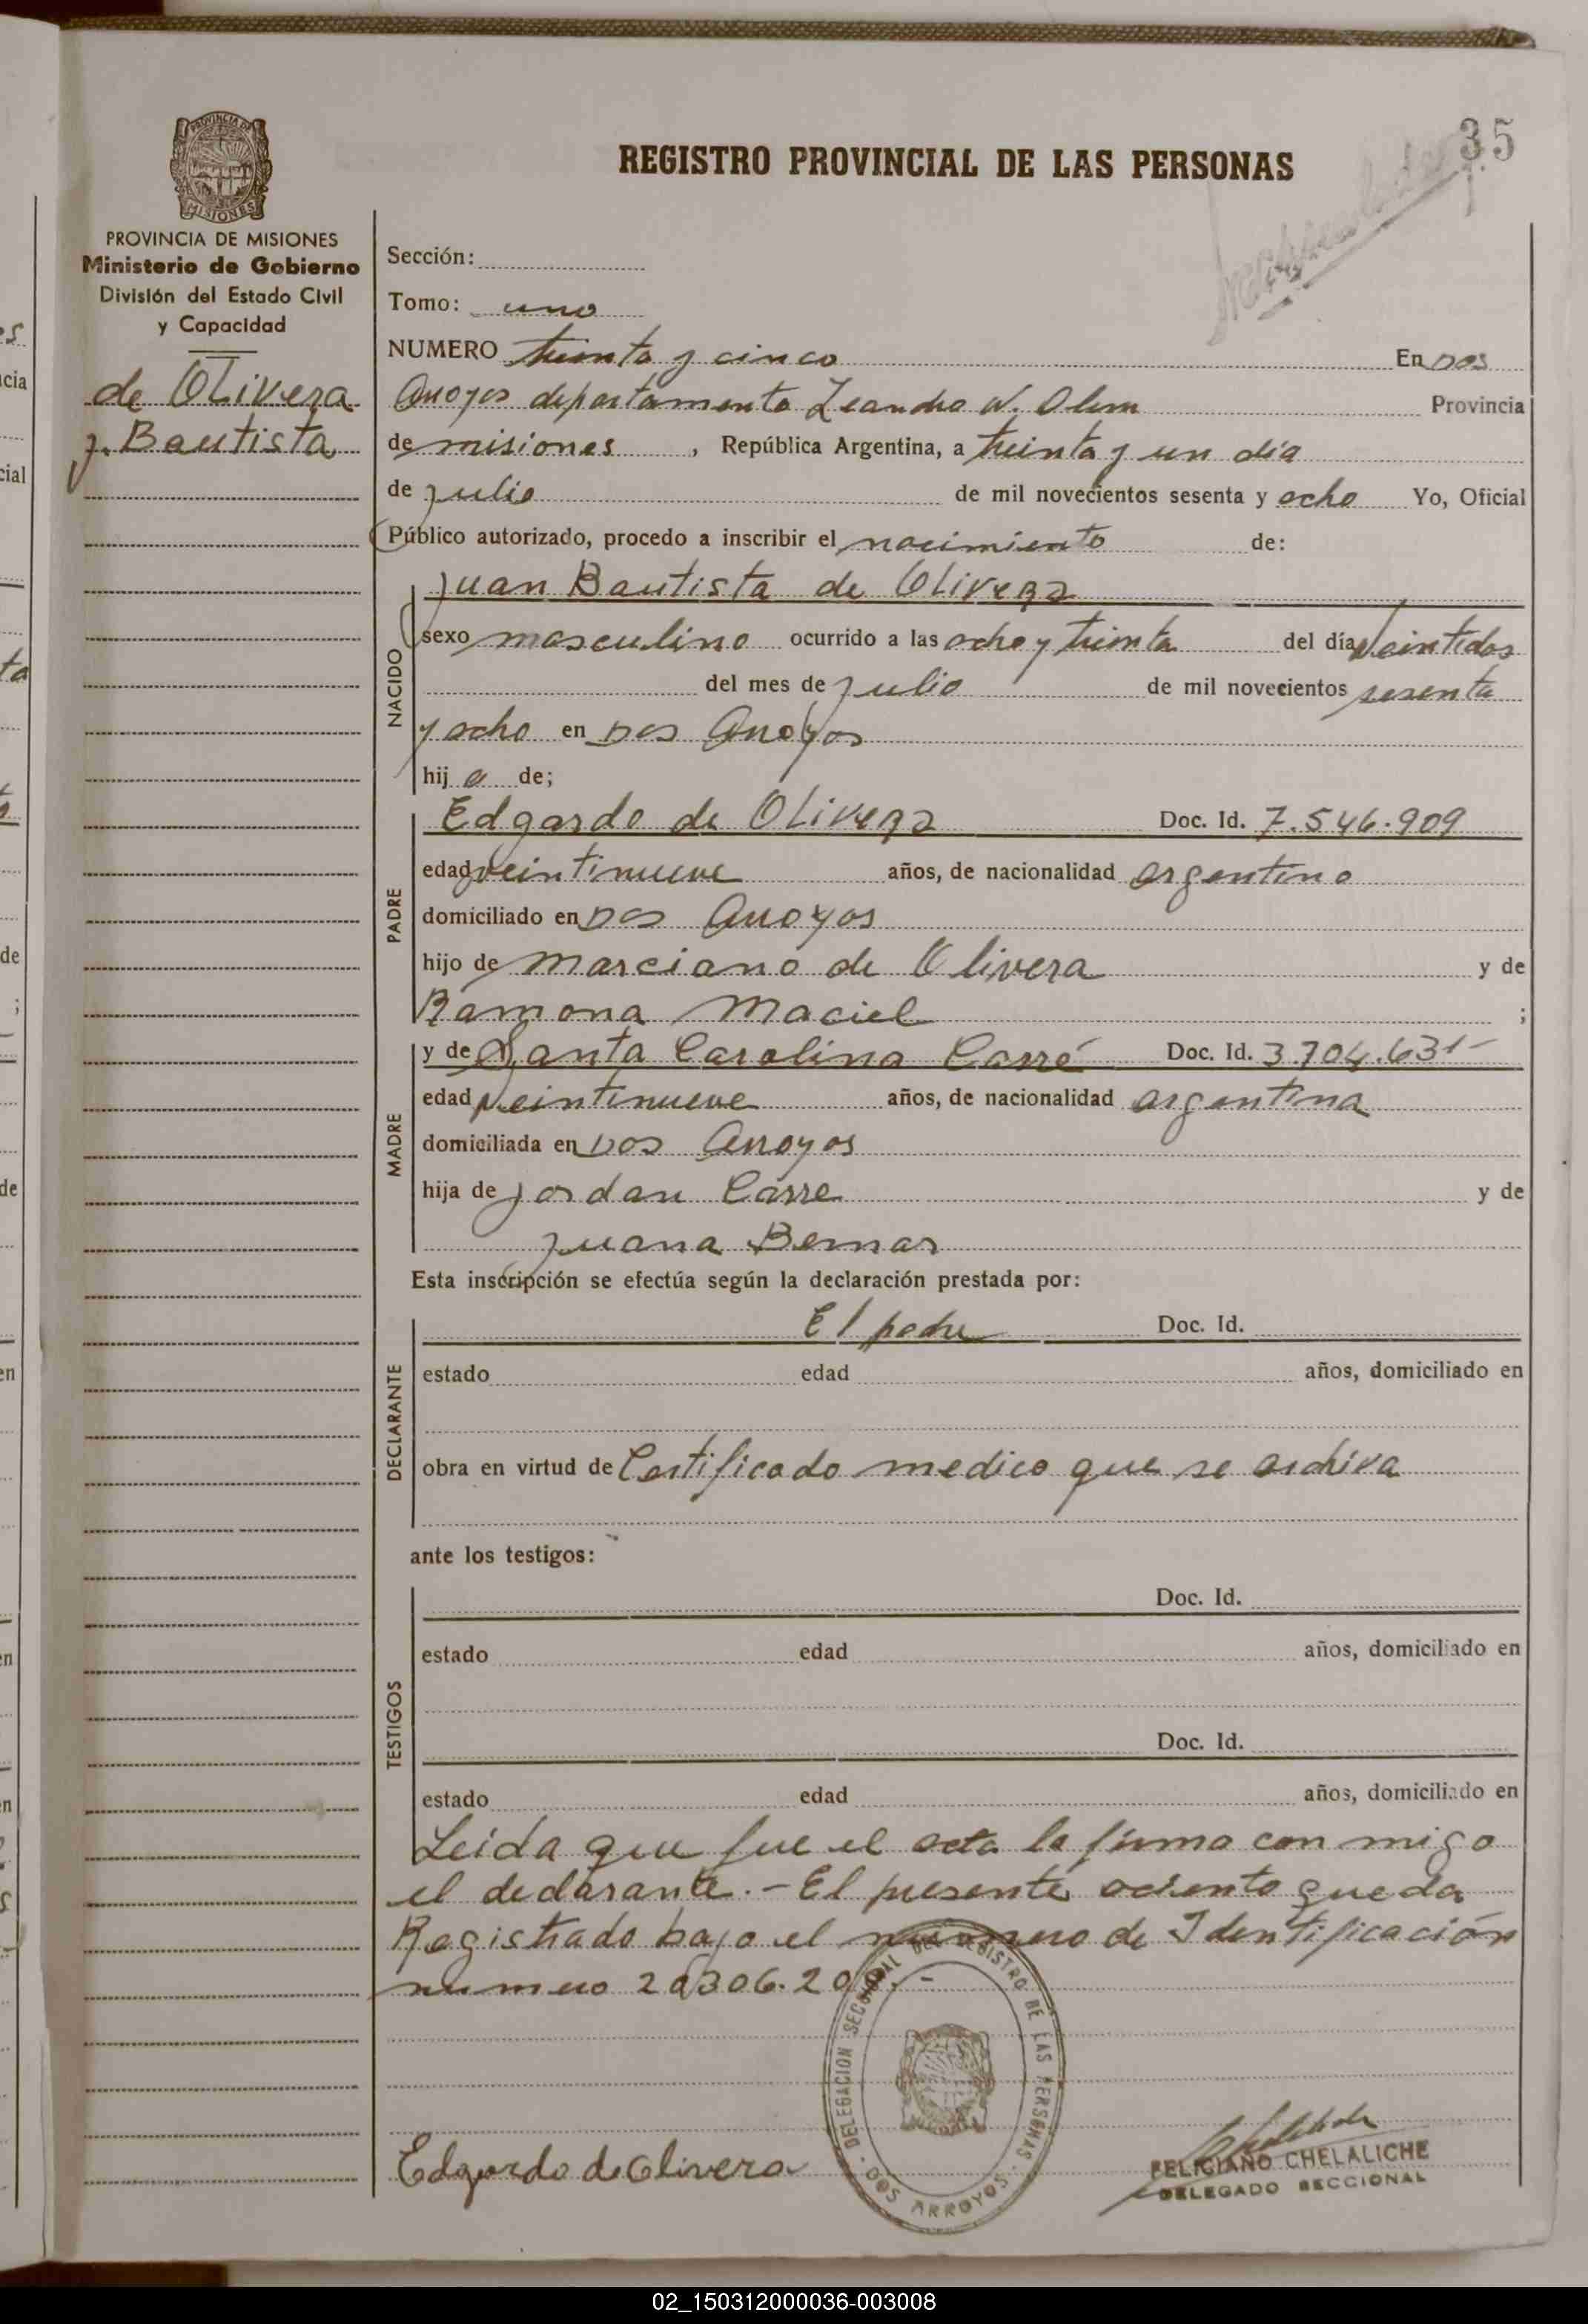 35
REGISTRO PROVINCIAL DE LAS PERSONAS
PROVINCIA DE
MISIONES
PROVINCIA DE MISIONES
Ministerio de Gobierno
División del Estado Civil
y Capacidad
de Olivera
J. Bautista
Sección:
Tomo: uno
NUMERO treinta y cinco En Dos
Arroyos departamento Leandro N. Alem Provincia
de misiones , República Argentina, a treinta y un día
de julio de mil novecientos sesenta y ocho Yo, Oficial
Público autorizado, procedo a inscribir el nacimiento de:
NACIDO
Juan Bautista de Olivera
sexo masculino ocurrido a las ocho y treinta del día Veintidos
del mes de julio de mil novecientos sesenta
y ocho en Dos Arroyos
hij o de;
PADRE
Edgardo de Olivera Doc. Id. 7.546.909
edad veintinueve años, de nacionalidad argentino
domiciliado en Dos Arroyos
hijo de Marciano de Olivera y de
Ramona Maciel ;
MADRE
y de Santa Carolina Carré Doc. Id. 3.704.631-
edad Veintinueve años, de nacionalidad argentina
domiciliada en Dos Arroyos
hija de Jordan Carre y de
Juana Bernar
Esta inscripción se efectúa según la declaración prestada por:
DECLARANTE
El padre Doc. Id.
estado edad años, domiciliado en
obra en virtud de Certificado medico que se archiva
ante los testigos:
TESTIGOS
Doc. Id.
estado edad años, domiciliado en
Doc. Id.
estado edad años, domiciliado en
Leida que fue el acta la firma con migo
el declarante.- El presente asiento queda
Registrado bajo el numero de Identificación
numero 20306.20
DELEGACION SECCIONAL DEL REGISTRO DE LAS PERSONAS
DOS ARROYOS
Edgardo de Olivera
FELICIANO CHELALICHE
DELEGADO SECCIONAL
02_150312000036-003008